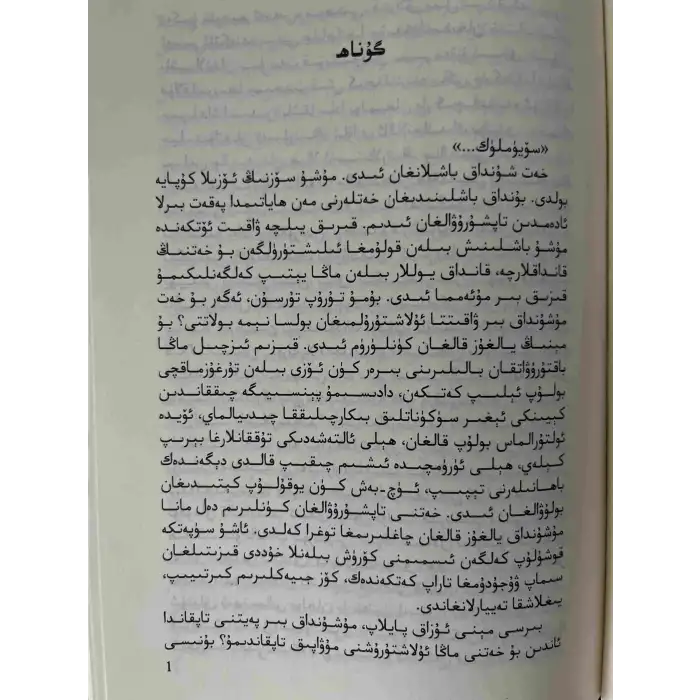 گۇناھ
«سۆيۈملۈك...»
خەت شۇنداق باشلانغان ئىدى. مۇشۇ سۆزنىڭ ئۆزىلا كۇپايە
بولدى. بۇنداق باشلىنىدىغان خەتلەرنى مەن ھاياتىمدا پەقەت بىرلا
ئادەمدىن تاپشۇرۇۋالغان ئىدىم. قىرىق يىلچە ۋاقىت ئۆتكەندە
مۇشۇ باشلىنىش بىلەن قولۇمغا ئىلىشتۈرۈلگەن بۇ خەتنىڭ
قانداقلارچە، قانداق يوللار بىلەن ماڭا يېتىپ كەلگەنلىكىمۇ
قىزىق بىر مۇئەمما ئىدى. بۇمۇ تۇرۇپ تۇرسۇن، ئەگەر بۇ خەت
مۇشۇنداق بىر ۋاقىتتا ئۇلاشتۇرۇلمىغان بولسا نېمە بولاتتى؟ بۇ
مېنىڭ يالغۇز قالغان كۈنلۈرۈم ئىدى. قىزىم ئىزچىل ماڭا
باقتۇرۇۋاتقان بالىلىرىنى بىرەر كۈن ئۆزى بىلەن تۇرغۇزماقچى
بولۇپ ئېلىپ كەتكەن، دادىسىمۇ پېنسىيىگە چىققاندىن
كېيىنكى ئېغىر سۈكۈناتلىق بىكارچىلىققا چىدىيالماي، ئۆيدە
ئولتۇرالماس بولۇپ قالغان، ھېلى ئالتەشەدىكى تۇققانلارغا بېرىپ
كېلەي، ھېلى ئۈرۈمچىدە ئىشىم چىقىپ قالدى دېگەندەك
باھانىلەرنى تېپىپ، ئۈچ-بەش كۈن يوقۇلۇپ كېتىدىغان
بولۇۋالغان ئىدى. خەتنى تاپشۇرۇۋالغان كۈنلىرىم دەل مانا
مۇشۇنداق يالغۇز قالغان چاغلىرىمغا توغرا كەلدى. ئاشۇ سۈپەتكە
قوشۇلۇپ كەلگەن ئىسمىمنى كۆرۈش بىلەنلا خۇددى قىزىتىلغان
سىماپ ۋۇجۇدۇمغا تاراپ كەتكەندەك، كۆز جىيەكلىرىم كىرتىيىپ،
يىغلاشقا تەييارلانغاندى.
بىرسى مېنى ئۇزاق پايلاپ، مۇشۇنداق بىر پەيتنى تاپقاندا
ئاندىن بۇ خەتنى ماڭا ئۇلاشتۇرۇشنى مۇۋاپىق تاپقاندىمۇ؟ بۇنىسى
1